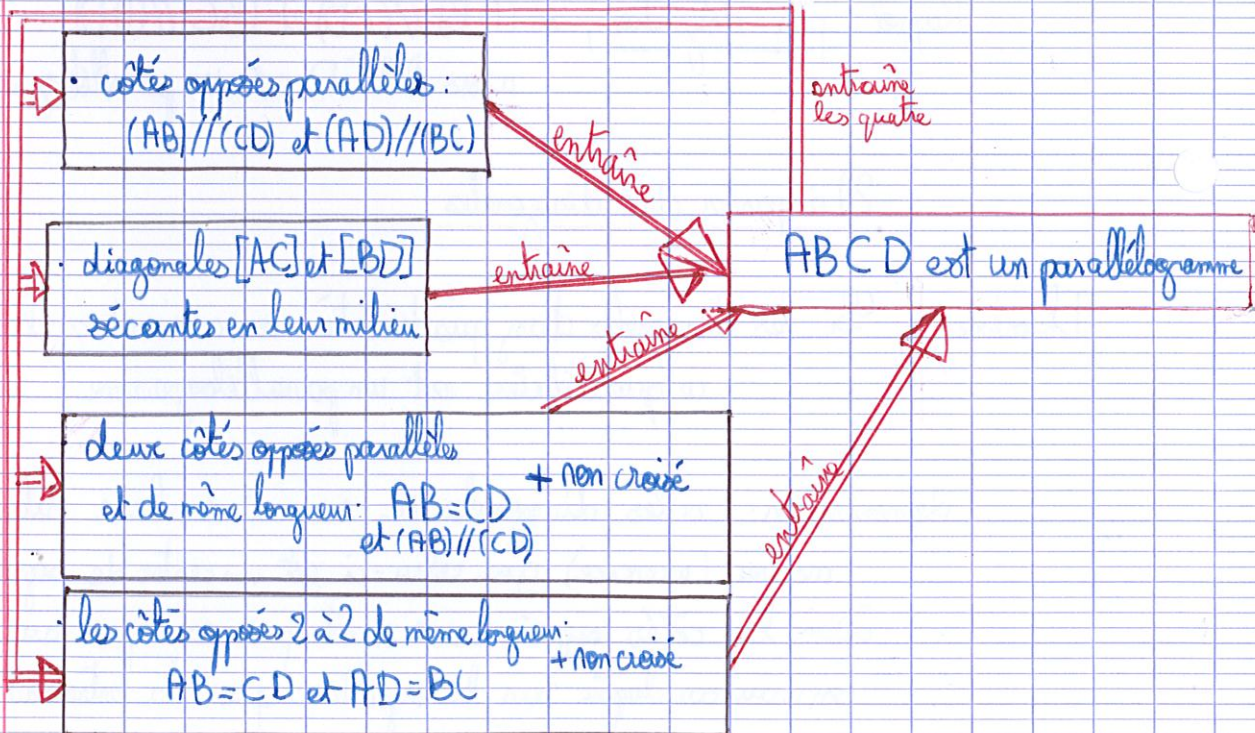 · côtés opposés parallèles :
(AB)//(CD) et (AD)//(BC)
entraîne
entraîne
les quatre
· diagonales [AC] et [BD]
sécantes en leur milieu
entraîne
ABCD est un parallélogramme
entraîne
deux côtés opposés parallèles
et de même longueur: AB=CD + non croisé
et (AB)//(CD)
entraîne
· les côtés opposés 2 à 2 de même longueur:
+ non croisé
AB=CD et AD=BC